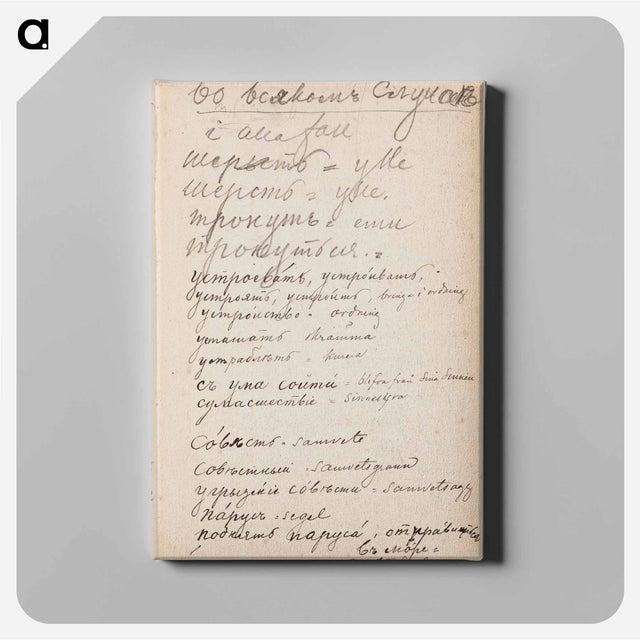 a
Во всякомъ Случаѣ
i alla fall
шерсть = ylle
шерсть = ylle.
тронуть =
тронуться. =
устроевать, устроивать, -
устроять, устроить, bringa i ordning
устройство - ordning
устрашать skrämma
съ ума сойти = blifva från sina sinnen
сумасшествіе = sinnes
Со́вѣсть - samvete
совѣстный - samvetsgrann
угрызеніе совѣсти = samvets
па́русъ - segel
поднять паруса́, отправиться
въ мо́ре =